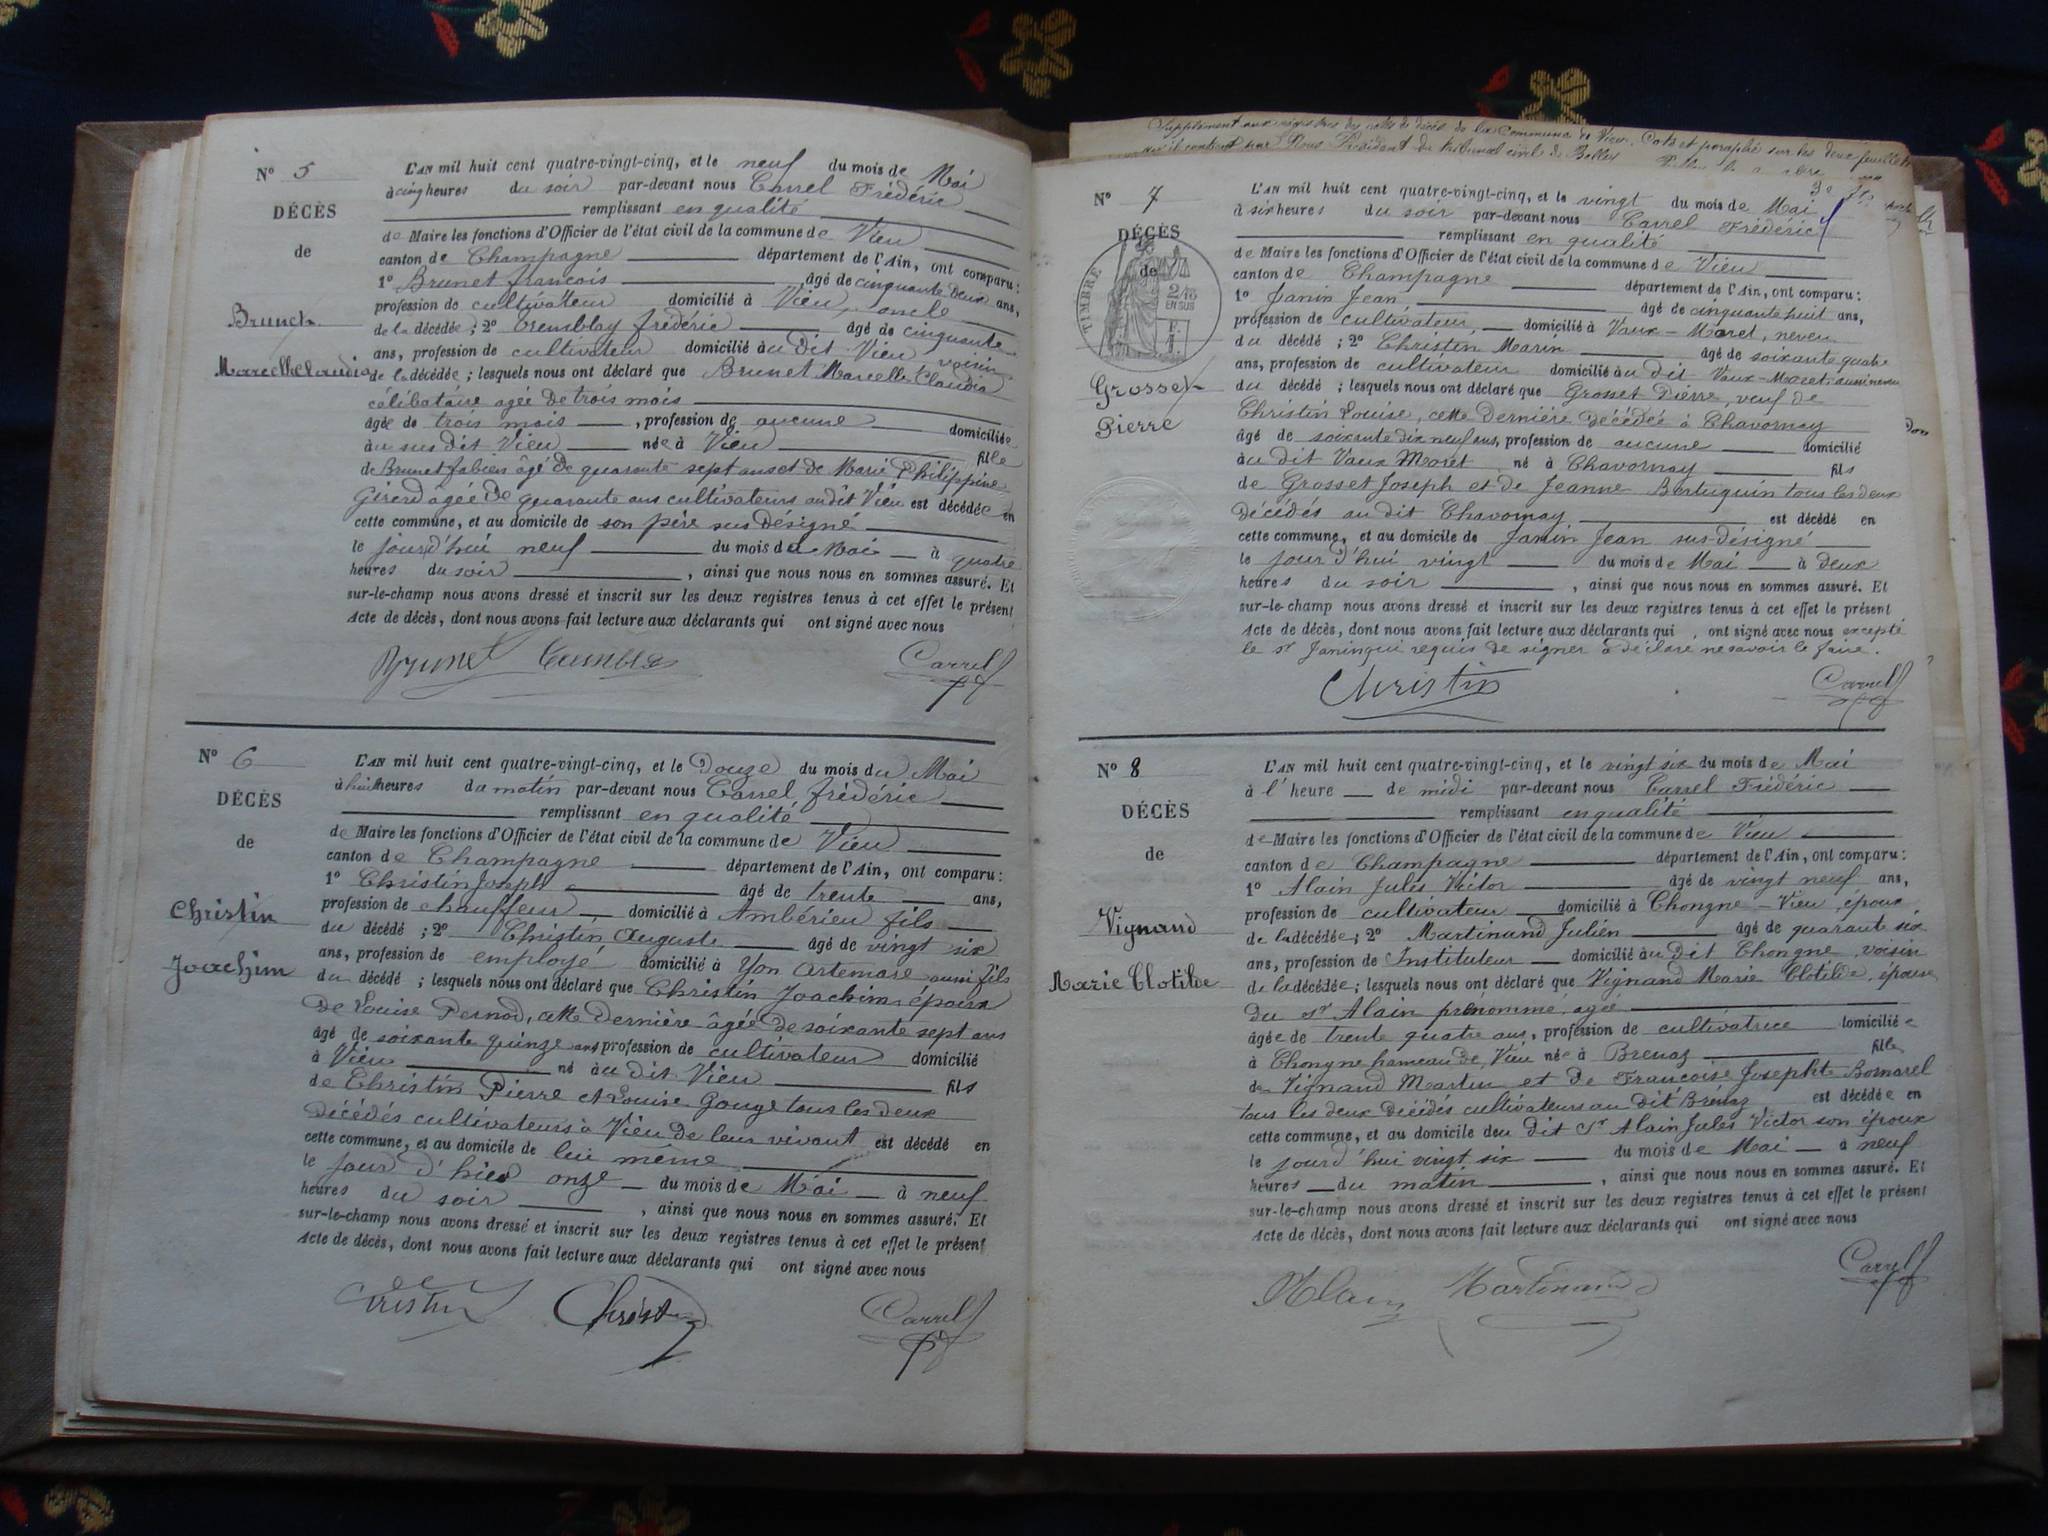 Nº 5
DÉCÈS
de
Brunet
Marcelle Claudia
L'AN mil huit cent quatre-vingt-cinq, et le neuf du mois de Mai
à cinq heures du soir par-devant nous Carrel Frédéric
remplissant en qualité
de Maire les fonctions d'Officier de l'état civil de la commune de Vieu
canton de Champagne département de l'Ain, ont comparu :
1º Brunet francois âgé de cinquante deux ans,
profession de cultivateur domicilié à Vieu, oncle
de la décédée ; 2º Tremblay frédéric âgé de cinquante
ans, profession de cultivateur domicilié au dit Vieu voisin
de la décédée ; lesquels nous ont déclaré que Brunet Marcelle Claudia
célibataire agée de trois mois
âgée de trois mois , profession de aucune domiciliée
au sus dit Vieu née à Vieu fille
de Brunet fabien âgé de quarante sept ans et de Marie Philippine
Girerd âgée de quarante ans cultivateurs au dit Vieu est décédée en
cette commune, et au domicile de son père sus désigné
le jourd'hui neuf du mois de Mai à quatre
heures du soir , ainsi que nous nous en sommes assuré. Et
sur-le-champ nous avons dressé et inscrit sur les deux registres tenus à cet effet le présent
Acte de décès, dont nous avons fait lecture aux déclarants qui ont signé avec nous
Brunet Carrel
Nº 6
DÉCÈS
de
Christin
Joachim
L'AN mil huit cent quatre-vingt-cinq, et le Douze du mois du Mai
à huit heures du matin par-devant nous Carrel frédéric
remplissant en qualité
de Maire les fonctions d'Officier de l'état civil de la commune de Vieu
canton de Champagne département de l'Ain, ont comparu :
1º Christin Joseph âgé de trente ans,
profession de chauffeur domicilié à Ambérieu fils
du décédé ; 2º Christin Auguste âgé de vingt six
ans, profession de employé domicilié à Yon Artemare aussi fils
du décédé ; lesquels nous ont déclaré que Christin Joachim époux
de Louise Pernod, cette dernière âgée de soixante sept ans
âgé de soixante quinze ans profession de cultivateur domicilié
à Vieu né au dit Vieu fils
de Christin Pierre et Louise Gouge tous les deux
décédés cultivateurs à Vieu de leur vivant est décédé en
cette commune, et au domicile de lui même
le jour d'hier onze du mois de Mai à neuf
heures du soir , ainsi que nous nous en sommes assuré. Et
sur-le-champ nous avons dressé et inscrit sur les deux registres tenus à cet effet le présent
Acte de décès, dont nous avons fait lecture aux déclarants qui ont signé avec nous
Cristin Christin Carrel
Supplément aux registres des actes de décès de la Commune de Vieu. Coté et paraphé sur les deux feuillets
qu'il contient par Nous Président du tribunal civil de Belley
Nº 7
DÉCÈS
de
TIMBRE
EN SUS
Grosset
Pierre
L'AN mil huit cent quatre-vingt-cinq, et le vingt du mois de Mai
à six heures du soir par-devant nous Carrel Frédéric
remplissant en qualité
de Maire les fonctions d'Officier de l'état civil de la commune de Vieu
canton de Champagne département de l'Ain, ont comparu :
1º Janin Jean âgé de cinquante huit ans,
profession de cultivateur, domicilié à Vaux-Moret, neveu
du décédé ; 2º Christin Marin âgé de soixante quatre
ans, profession de cultivateur domicilié au dit Vaux-Moret, aussi neveu
du décédé ; lesquels nous ont déclaré que Grosset Pierre, veuf de
Christin Louise, cette dernière décédée à Chavornay
âgé de soixante dix neuf ans, profession de aucune domicilié
au dit Vaux Moret né à Chavornay fils
de Grosset Joseph et de Jeanne Bertuquin tous les deux
décédés au dit Chavornay est décédé en
cette commune, et au domicile de Janin Jean sus-désigné
le jour d'hui vingt du mois de Mai à deux
heures du soir , ainsi que nous nous en sommes assuré. Et
sur-le-champ nous avons dressé et inscrit sur les deux registres tenus à cet effet le présent
Acte de décès, dont nous avons fait lecture aux déclarants qui , ont signé avec nous excepté
le sr Janin qui requis de signer a déclaré ne savoir le faire.
Christin Carrel
Nº 8
DÉCÈS
de
Vignand
Marie Clotilde
L'AN mil huit cent quatre-vingt-cinq, et le vingt six du mois de Mai
à l'heure de midi par-devant nous Carrel Frédéric
remplissant en qualité
de Maire les fonctions d'Officier de l'état civil de la commune de Vieu
canton de Champagne département de l'Ain, ont comparu :
1º Alain Jules Victor âgé de vingt neuf ans,
profession de cultivateur domicilié à Chongne-Vieu, époux
de la décédée ; 2º Martinand Julien âgé de quarante six
ans, profession de Instituteur domicilié au dit Chongne, voisin
de la décédée ; lesquels nous ont déclaré que Vignand Marie Clotilde, épouse
du sr Alain prénommé, agée
âgée de trente quatre ans, profession de cultivatrice domiciliée
à Chongne hameau de Vieu née à Brenaz fille
de Vignand Martin et de Francoise Josephte Bornarel
tous les deux décédés cultivateurs au dit Brénaz est décédée en
cette commune, et au domicile deu dit Sr Alain Jules Victor son époux
le jourd'hui vingt six du mois de Mai à neuf
heures du matin , ainsi que nous nous en sommes assuré. Et
sur-le-champ nous avons dressé et inscrit sur les deux registres tenus à cet effet le présent
Acte de décès, dont nous avons fait lecture aux déclarants qui ont signé avec nous
Alain Martinand Carrel